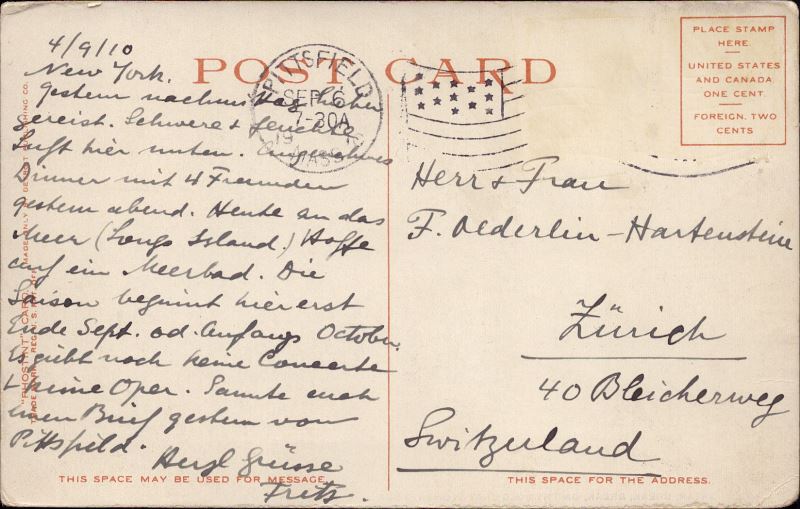 4/9/10
New York.
POST CARD
gestern nachmittag hieher
gereist. Schwere & feuchte
Luft hier unten. Angenehmes
Dinner mit 4 Freunden
gestern abend. Heute an das
Meer (Longs Island.) Hoffe
auf ein Meerbad. Die
Saison beginnt hier erst
Ende Sept. od. Anfangs October.
Es gibt noch keine Concerte
& keine Oper. Sandte euch
einen Brief gestern von
Pittsfield.
Herzl Grüsse
Fritz.
THIS SPACE MAY BE USED FOR MESSAGE.
PITTSFIELD
SEP 6
7-30A
19
MASS.
PLACE STAMP
HERE
UNITED STATES
AND CANADA
ONE CENT.
FOREIGN, TWO
CENTS
Herr & Frau
F. Oederlin-Hartenstein
Zürich
40 Bleicherweg
Switzerland
THIS SPACE FOR THE ADDRESS.
"PHOSTINT" CARD MADE ONLY BY DETROIT PUBLISHING CO.